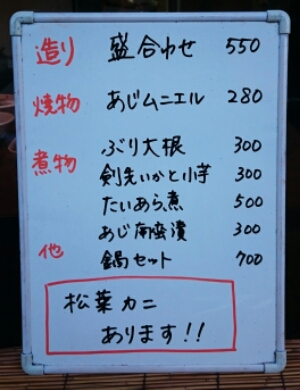 造り 盛合わせ 550
焼物 あじムニエル 280
煮物 ぶり大根 300
剣先いかと小芋 300
たいあら煮 500
あじ南蛮漬 300
他 鍋セット 700
松葉カニ
あります!!